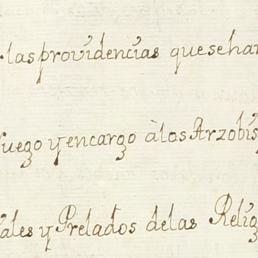 las providencias que se han
ruego y encargo à los Arzobis
ales y Prelados de las Relig